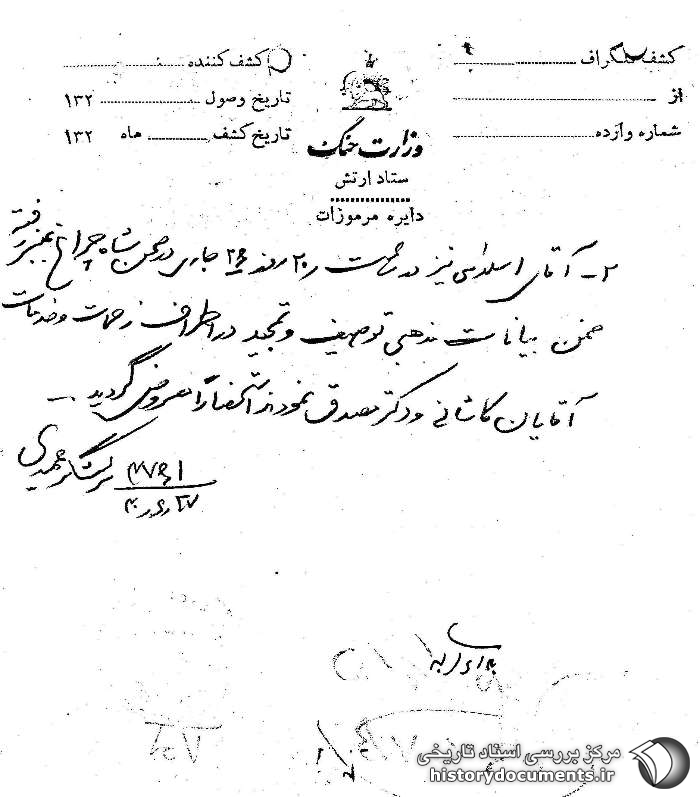 کشف تلگراف
از
شماره وارده
وزارت جنگ
ستاد ارتش
دایره مرموزات
کشف کننده
تاریخ وصول ۱۳۲
تاریخ کشف ماه ۱۳۲
۲- آقای اسلامی نیز در ساعت ۲۰ روز ۲۶ جاری در صحن شاه چراغ بمنبر رفته
ضمن بیانات مذهبی توصیف و تمجید در اطراف زحمات و خدمات
آقایان کاشانی و دکتر مصدق نمودند استحضاراً معروض گردید
سرلشگر
مرکز بررسی اسناد تاریخی
historydocuments.ir